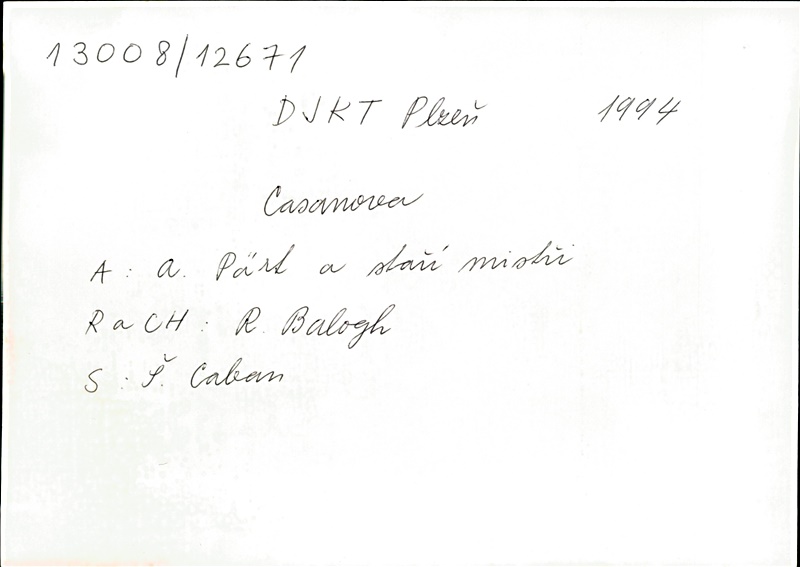 13008/12671
DJKT Plzeň 1994
Casanova
A: A. Pärt a staří mistři
R a CH: R. Balogh
S: Š. Caban